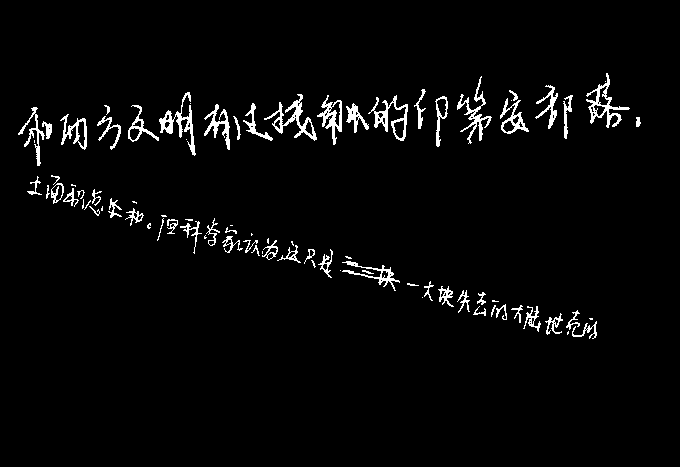 和西方文明有过接触的印第安部落。
土面积总公和。但科学家认为,这只是一大块失去的大陆地壳的